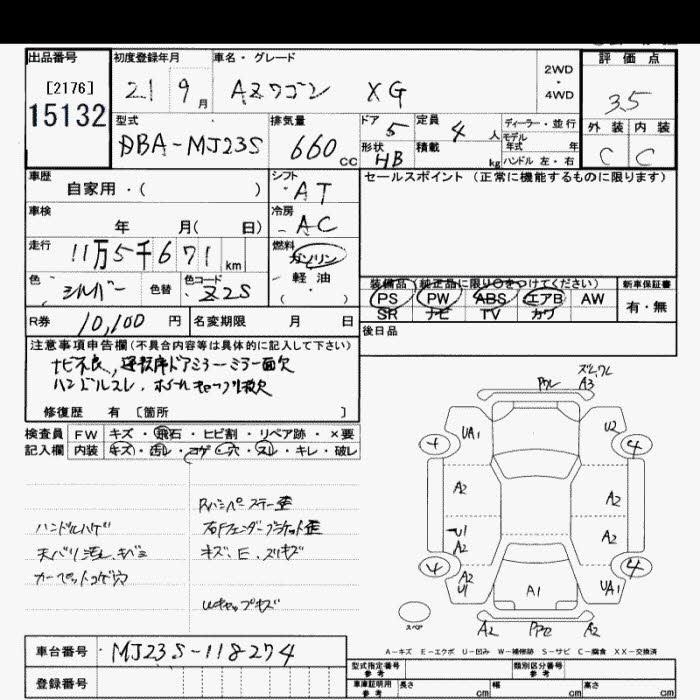 出品番号
[2176]
15132
初度登録年月
21 9月
車名・グレード
AZワゴン XG
2WD
・
4WD
評価点
3.5
外装 内装
C C
型式
DBA-MJ23S
排気量
660 cc
ドア 5
形状 HB
定員 4 人
積載 kg
ディーラー・並行
モデル
年式 年
ハンドル 左・右
車歴
自家用・( )
シフト
・AT
セールスポイント(正常に機能するものに限ります)
車検
年 月( 日)
冷房
・AC
走行
11万5千671 km
燃料
ガソリン
軽油
・( )
色
シルバー
色替
色コード
・Z2S
装備品(純正品に限り○をつけてください)
PS PW ABS エアB AW
SR ナビ TV カワ
新車保証書
有・無
R券 10,100 円
名変期限 月 日
後日品
注意事項申告欄(不具合内容等は具体的に記入して下さい)
ナビ不良、運転席ドアミラーミラー面欠
ハンドルスレ、ホイルキャップ1枚欠
修復歴 有 [箇所 ]
検査員
記入欄
FW キズ・飛石・ヒビ割・リペア跡・×要
内装 キズ・汚レ・コゲ・穴・スレ・キレ・破レ
Rバンパーステー歪
ハンドルハゲ
右Fフェンダーブラケット歪
天バリ汚レ、キズミ
キズ、E、スリキズ
カーペットコゲ穴
Wキャップキズ
ズレ、ワレ
A3
UA1
U2
4
4
A2
A2
U1
A2
A2
4
4
A2
U1
A1
UA1
スペア
A2
A2
A-キズ E-エクボ U-凹み W-補修跡 S-サビ C-腐食 XX-交換済
車台番号 ・MJ23S-118274
登録番号
型式指定番号
参考
類別区分番号
参考
車庫証明用
参考
長さ cm
幅 cm
高さ cm